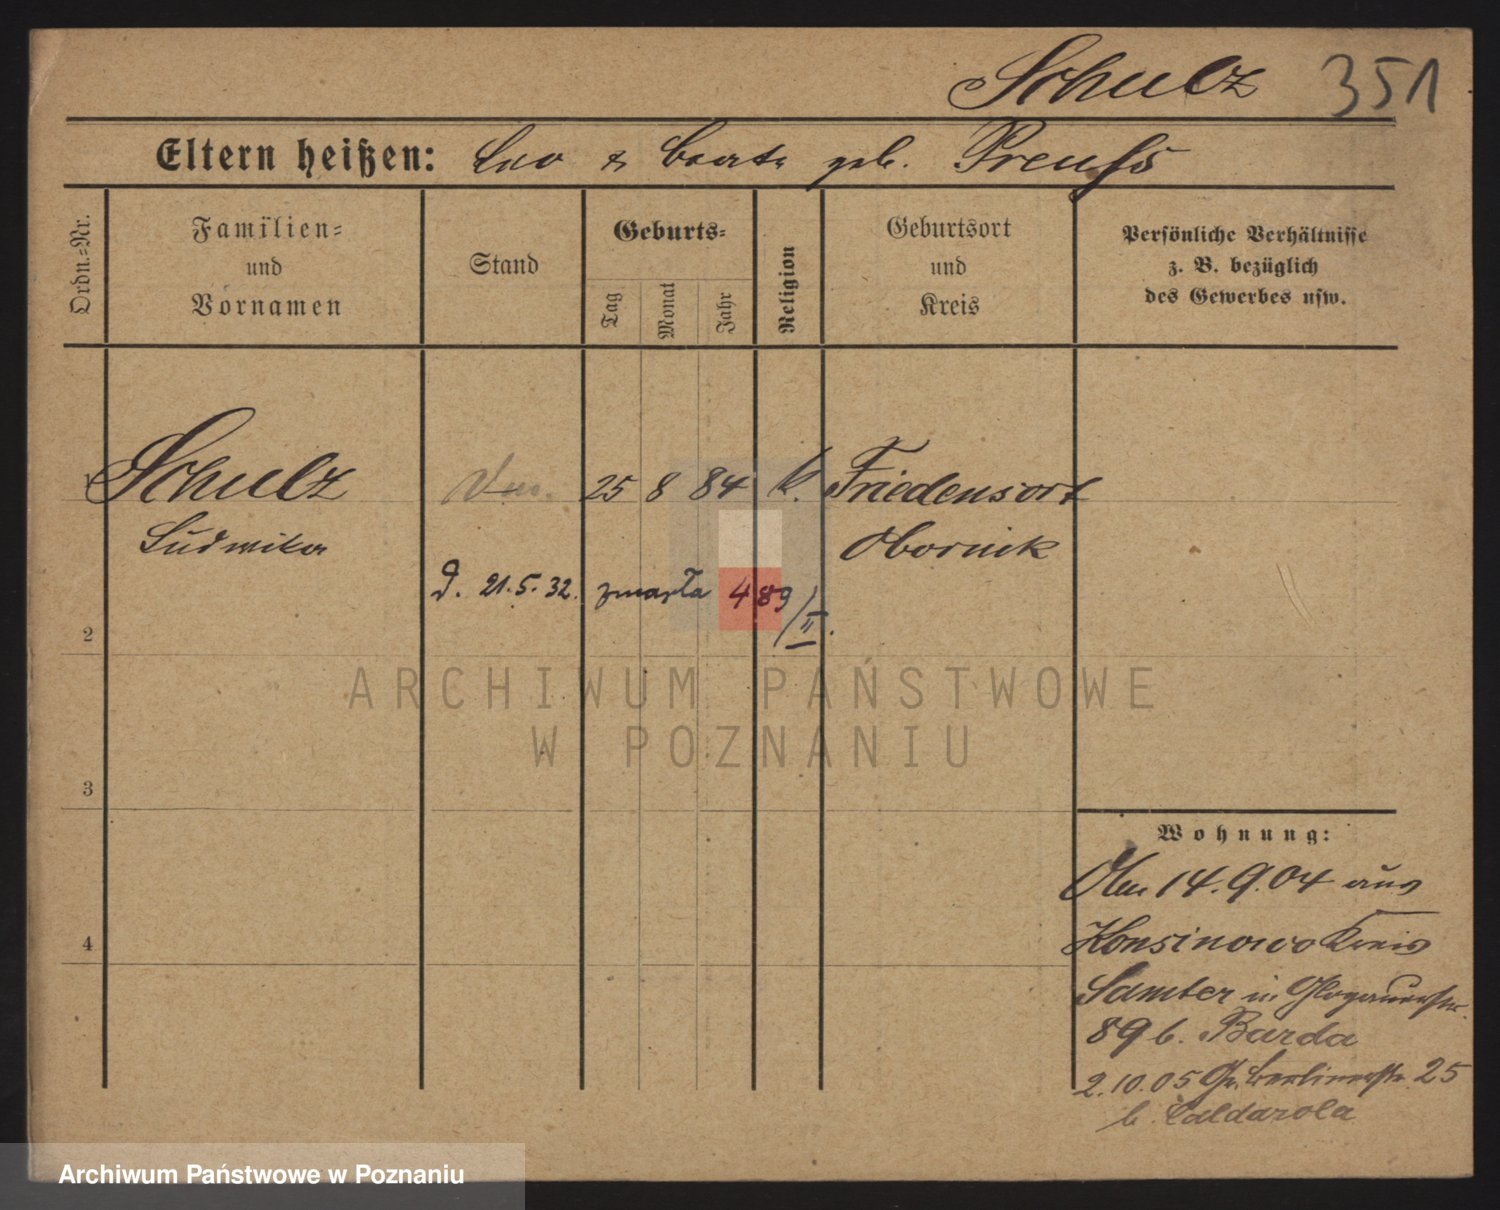 Schulz 351
Eltern heißen: Leo & Beate geb. Preuß
Ordn.-Nr.
Familien=
und
Vornamen
Stand
Geburts=
Tag
Monat
Jahr
Religion
Geburtsort
und
Kreis
Persönliche Verhältnisse
z. B. bezüglich
des Gewerbes usw.
1 Schulz 25 8 84 k. Friedensort
Ludwika Obornik
D. 21.5.32. zmarła 489/II.
2
3
4
Wohnung:
14.9.04 aus
Konsinowo Kreis
Samter in Glogauerstr.
89 b. Barda
2.10.05 Gr. Berlinerstr. 25
b. Caldarola
ARCHIWUM PAŃSTWOWE
W POZNANIU
Archiwum Państwowe w Poznaniu